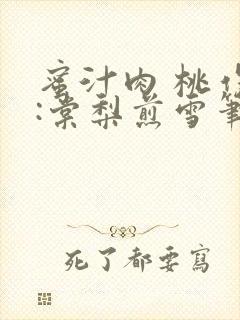 蜜汁肉桃作
:棠梨煎雪筆
死了都要寫